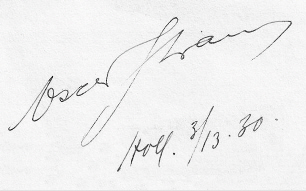 Oscar Straus
Holl. 3/13.30.